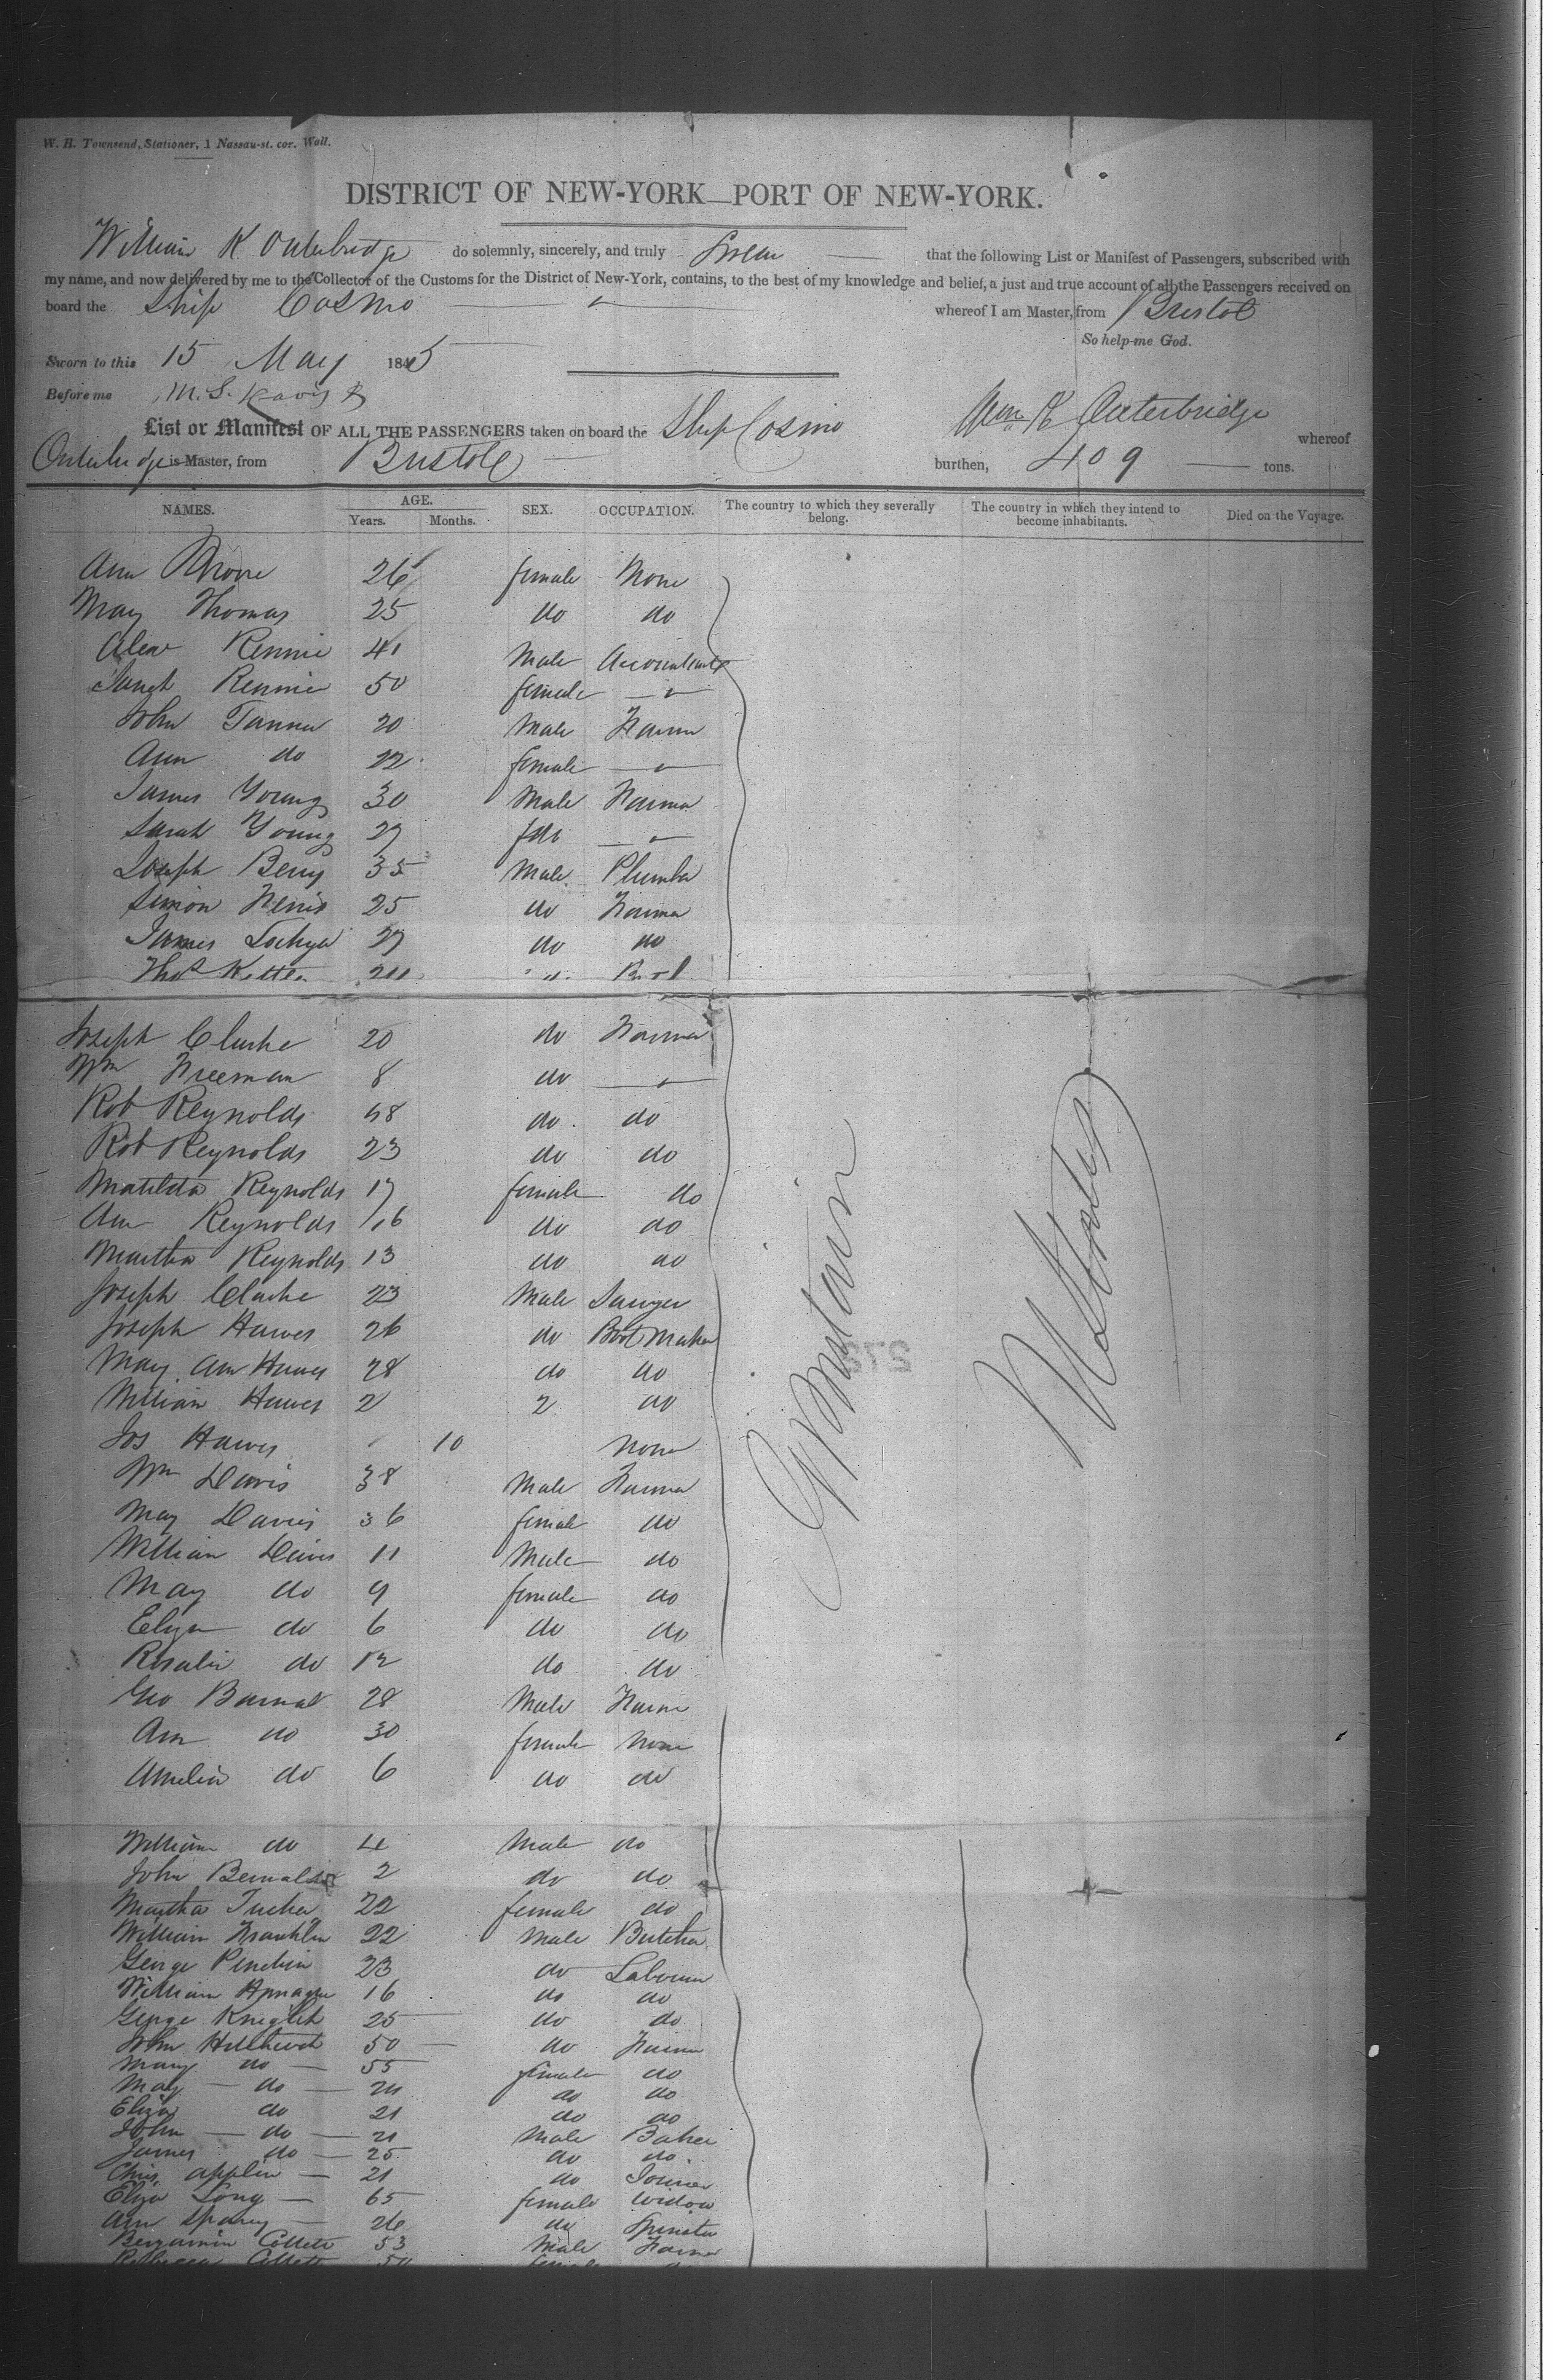 W. H. Townsend, Stationer, 1 Nassau-st. cor. Wall.
DISTRICT OF NEW-YORK—PORT OF NEW-YORK.
William K. Outerbridge do solemnly, sincerely, and truly Swear that the following List or Manifest of Passengers, subscribed with
my name, and now delivered by me to the Collector of the Customs for the District of New-York, contains, to the best of my knowledge and belief, a just and true account of all the Passengers received on
board the Ship Cosmo whereof I am Master, from Bristol
So help me God.
Sworn to this 15 May 1845
Before me M. S.
Wm K Outerbridge
List or Manifest OF ALL THE PASSENGERS taken on board the Ship Cosmo whereof
Outerbridge is Master, from Bristol burthen, 409 tons.
NAMES. AGE. Years. Months. SEX. OCCUPATION. The country to which they severally belong. The country in which they intend to become inhabitants. Died on the Voyage.
Ann Moore 26 female None
Mary Thomas 25 do do
Alexr Rennie 41 Male Accountant
Sarah Rennie 50 female
John Tanner 20 Male Farmer
Ann do 22 female
James Young 30 Male Farmer
Sarah Young 27 fdo
Joseph Berry 35 Male Plumber
Simon 25 do Farmer
James 27 do do
Thos
Joseph Clarke 20 do Farmer
Wm Freeman 8 do
Rob Reynolds 48 do do
Rob Reynolds 23 do do
Matilda Reynolds 17 female do
Ann Reynolds 16 do do
Martha Reynolds 13 do do
Joseph Clarke 23 Male Sawyer
Joseph Hawes 26 do Boot Maker
Mary Ann Hawes 28 do do
William Hawes 2 2 do
Jos Hawes 10 None
Wm Davis 38 Male Farmer
Mary Davies 36 female do
William Davis 11 Male do
Mary do 9 female do
Eliza do 6 do do
Rosalie do 12 do do
Geo 28 Male Farmer
Ann do 30 female None
Amelia do 6 do do
William do 4 Male do
John 2 do do
Martha Tucker 22 female do
William Franklin 22 Male Butcher
George 23 do Labourer
William 16 do do
George Knight 25 do do
John 50 do Farmer
Mary do 55 female do
Mary do do do
Eliza do 21 do do
John do 21 Male Baker
James do 25 do do
Chris Applin 21 do Joiner
Eliza Long 65 female Widow
Ann 26 do Spinster
Benjamin Colletts 53 Male Farmer
G Britain
U States
272